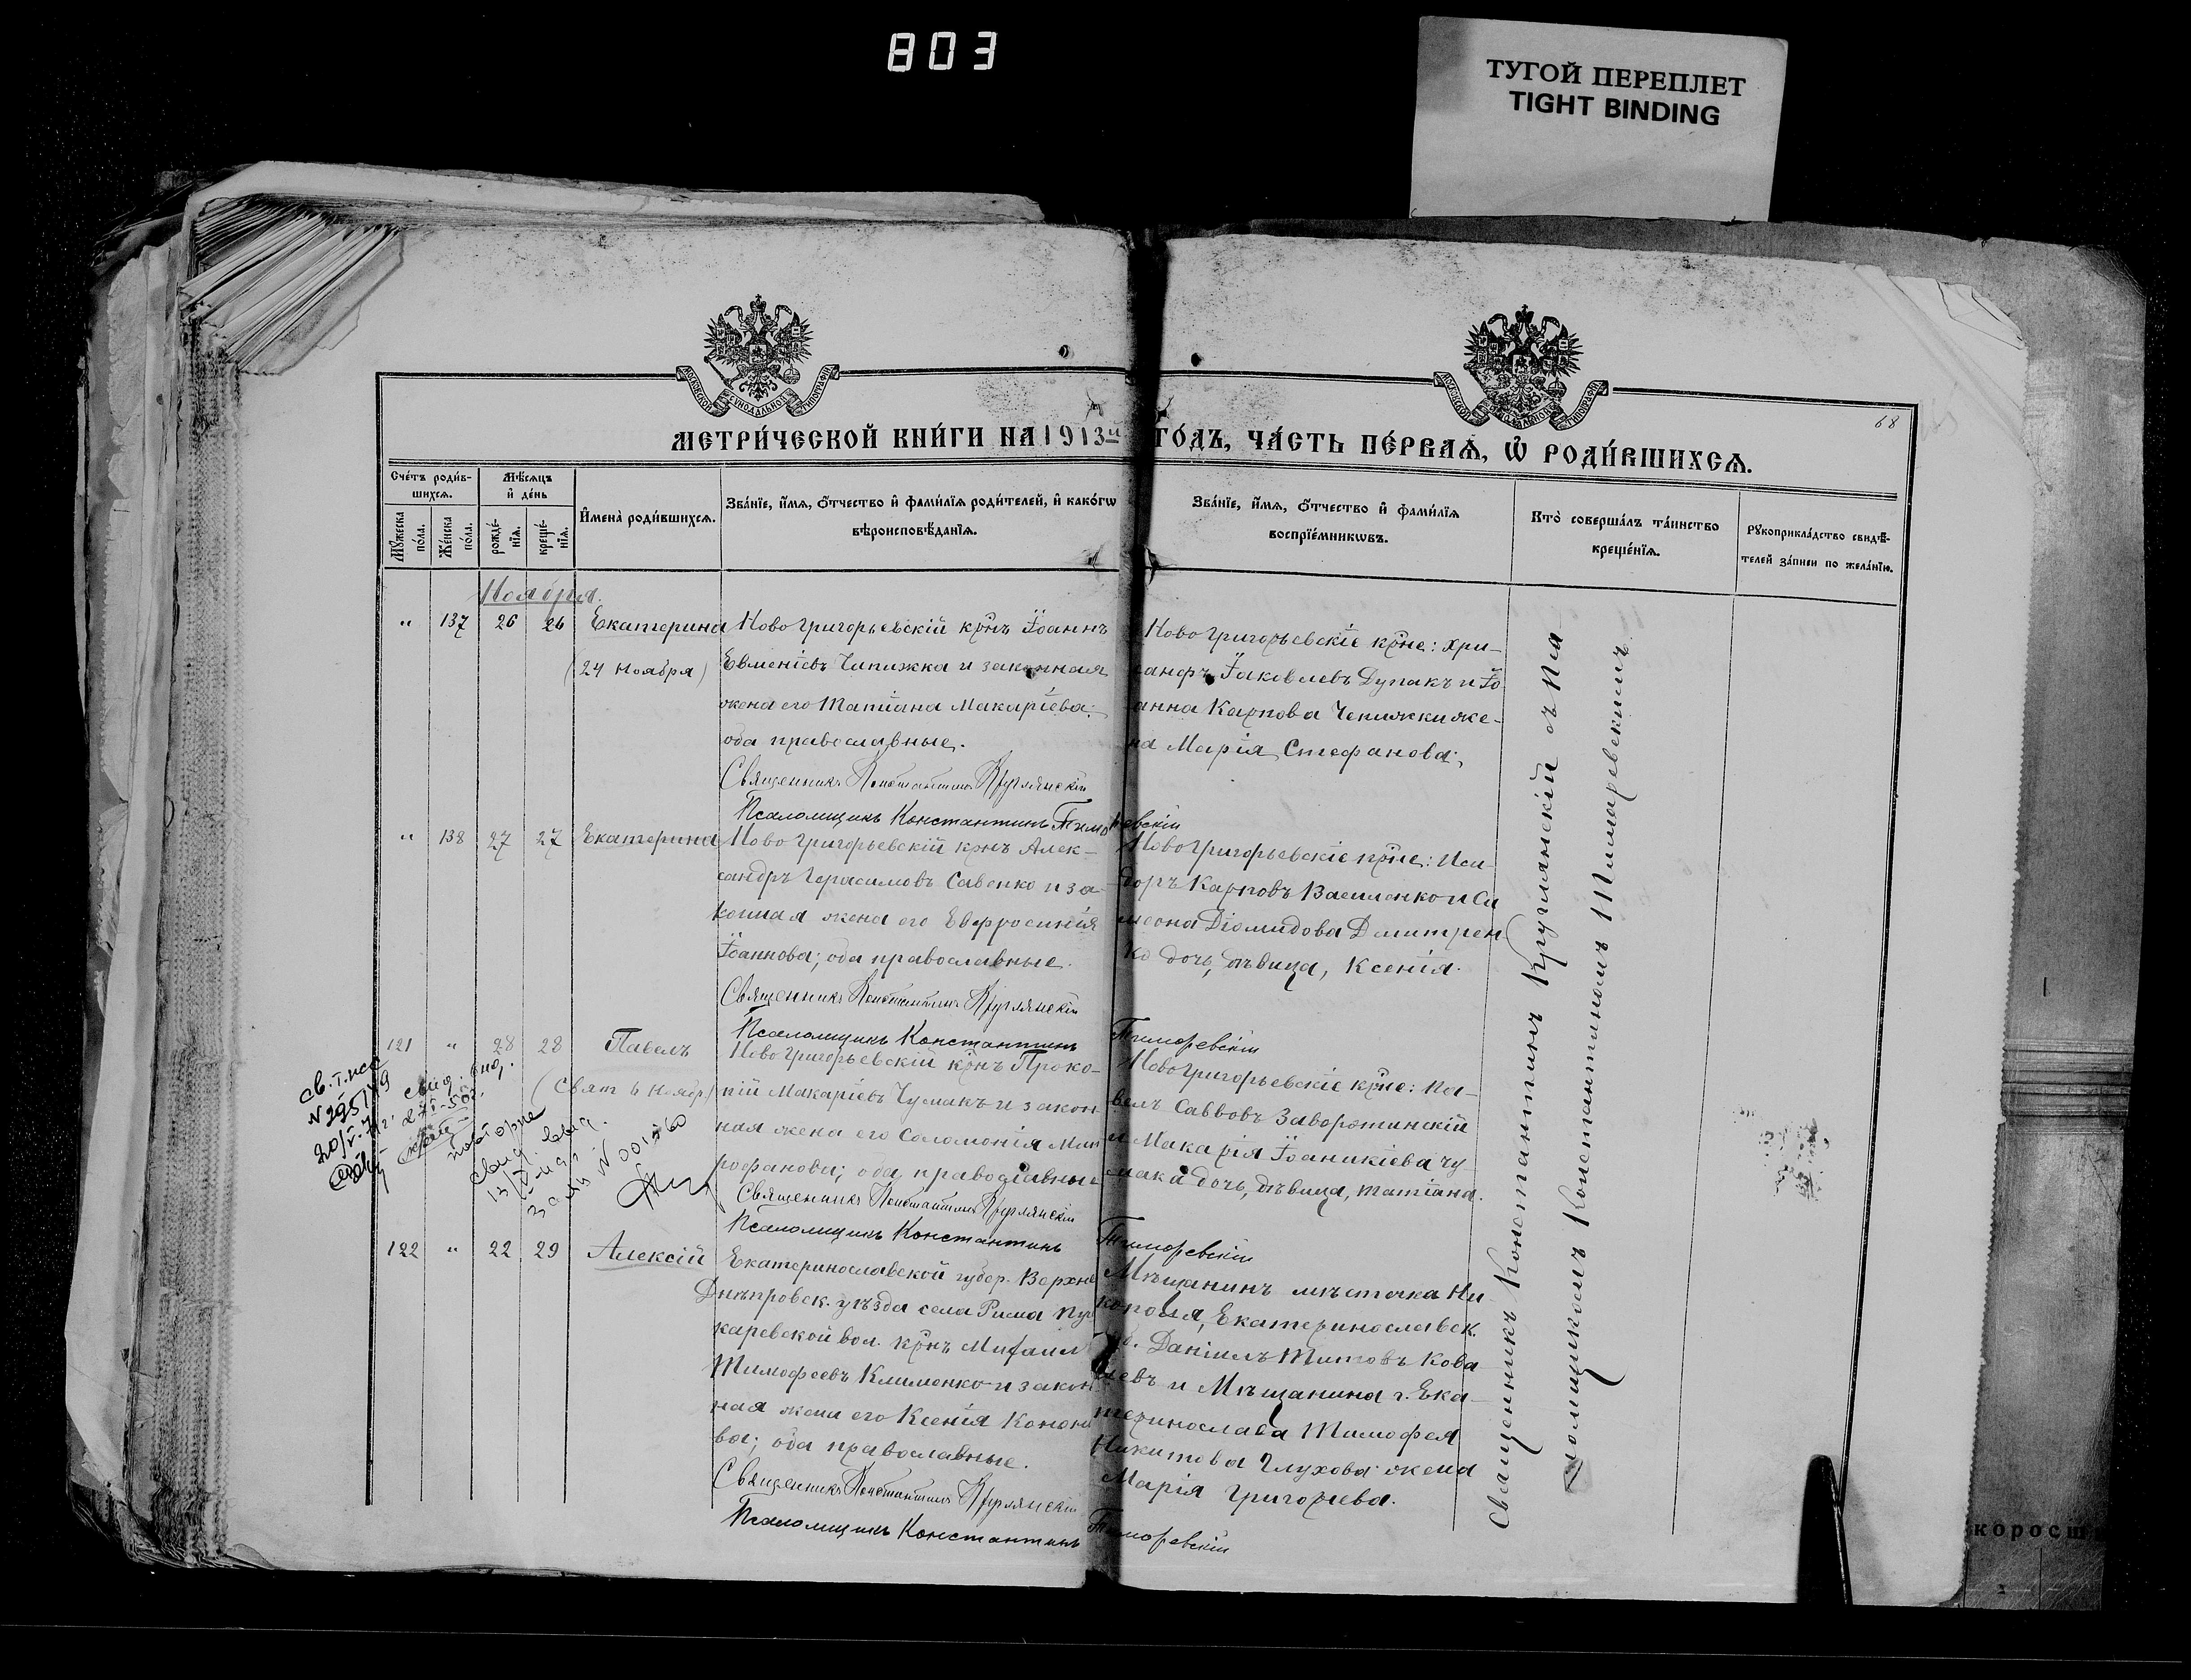 803
ТУГОЙ ПЕРЕПЛЕТ
TIGHT BINDING
МОСКОВСКОЙ СѴНОДАЛЬНОЙ ТИПОГРАФІИ
МОСКОВСКОЙ СѴНОДАЛЬНОЙ ТИПОГРАФІИ
68
МЕТРИ́ЧЕСКОЙ КНИ́ГИ НА 1913й ГО́ДЪ, ЧА́СТЬ ПЕ́РВАѦ, Ѡ҆ РОДИ́ВШИХСѦ.
Сче́тъ роди́в-
шихсѧ.
Мѣ́сѧцъ
и҆ де́нь
Мꙋ́жеска
по́ла.
Же́нска
по́ла.
рожде́-
нїѧ.
креще́-
нїѧ.
И҆мена̀ роди́вшихсѧ.
Зва́нїе, и҆́мѧ, ѻ҆́тчество и҆ фами́лїѧ роди́телей, и҆ како́гѡ
вѣроисповѣ́данїѧ.
Зва́нїе, и҆́мѧ, ѻ҆́тчество и҆ фами́лїѧ
воспрїе́мникѡвъ.
Кто̀ соверша́лъ та́инство
креще́нїѧ.
Рꙋкоприкла́дство свидѣ́-
телей за́писи по жела́нїю.
Ноября.
" 137 26 26 Екатерина
(24 Ноября)
Ново Григорьевскій крнъ Іоаннъ
Евменіевъ Чипижка и законная
жена его Татіана Макаріева;
оба православные.
Священникъ Константинъ Круглянскій
Псаломщикъ Константинъ Тиморевскій
Ново Григорьевскіе крне: Хри-
санфъ Іаковлевъ Дупакъ и Іо
анна Карпова Чепижки же-
на Марія Стефанова;
" 138 27 27 Екатерина
Ново Григорьевскій крнъ Алек-
сандръ Герасимовъ Савенко и за-
конная жена его Евфросинія
Іоаннова; оба православные.
Священникъ Константинъ Круглянскій
Псаломщикъ Константинъ Тиморевскій
Ново Григорьевскіе крне: Иси-
доръ Карповъ Василенко и Си
меона Діомидова Дмитрен
ко дочь, дѣвица, Ксенія.
121 " 28 28 Павелъ
(Свят 6 Ноябр)
Ново Григорьевскій крнъ Проко-
пій Макаріевъ Чумакъ и закон
ная жена его Соломонія Мит
рофанова; оба православные
Священникъ Константинъ Круглянскій
Псаломщикъ Константинъ Тиморевскій
Ново Григорьевскіе крне: Па-
велъ Саввовъ Заворотинскій
и Макарія Іоаникіева Чу
мака дочь, дѣвица, Татіана.
N 295/49
повторне
N 001560
122 " 22 29 Алексій
Екатеринославской губер. Верхне
Днѣпровск. уѣзда села Рима Пуш
каревской вол. крнъ Михаил
Тимофеевъ Клименко и закон
ная жена его Ксенія Конона
ва; оба православные.
Священникъ Константинъ Круглянскій
Псаломщикъ Константинъ Тиморевскій
Мѣщанинъ мѣстечка Ни
кополя, Екатеринославск.
губ. Даніилъ Титовъ Кова
левъ и Мѣщанина г. Ека-
теринослава Тимофея
Никитова Глухова жена
Марія Григорьева.
Священникъ Константинъ Круглянскій съ Пса
ломщикомъ Константиномъ Тиморевскимъ
коросш